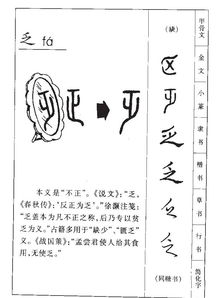 乏 fá
本义是“不正”。《说文》：“乏，
《春秋传》：‘反正为乏’。徐灏注笺：
“乏盖本为凡不正之称，后乃专以贫
乏为义。”古籍多用于“缺少”、“匮乏”
义。《战国策》：“孟尝君使人给其食
用，无使乏。”
（缺）
甲骨文
金文
小篆
隶书
楷书
草书
行书
简化字
（同楷书）